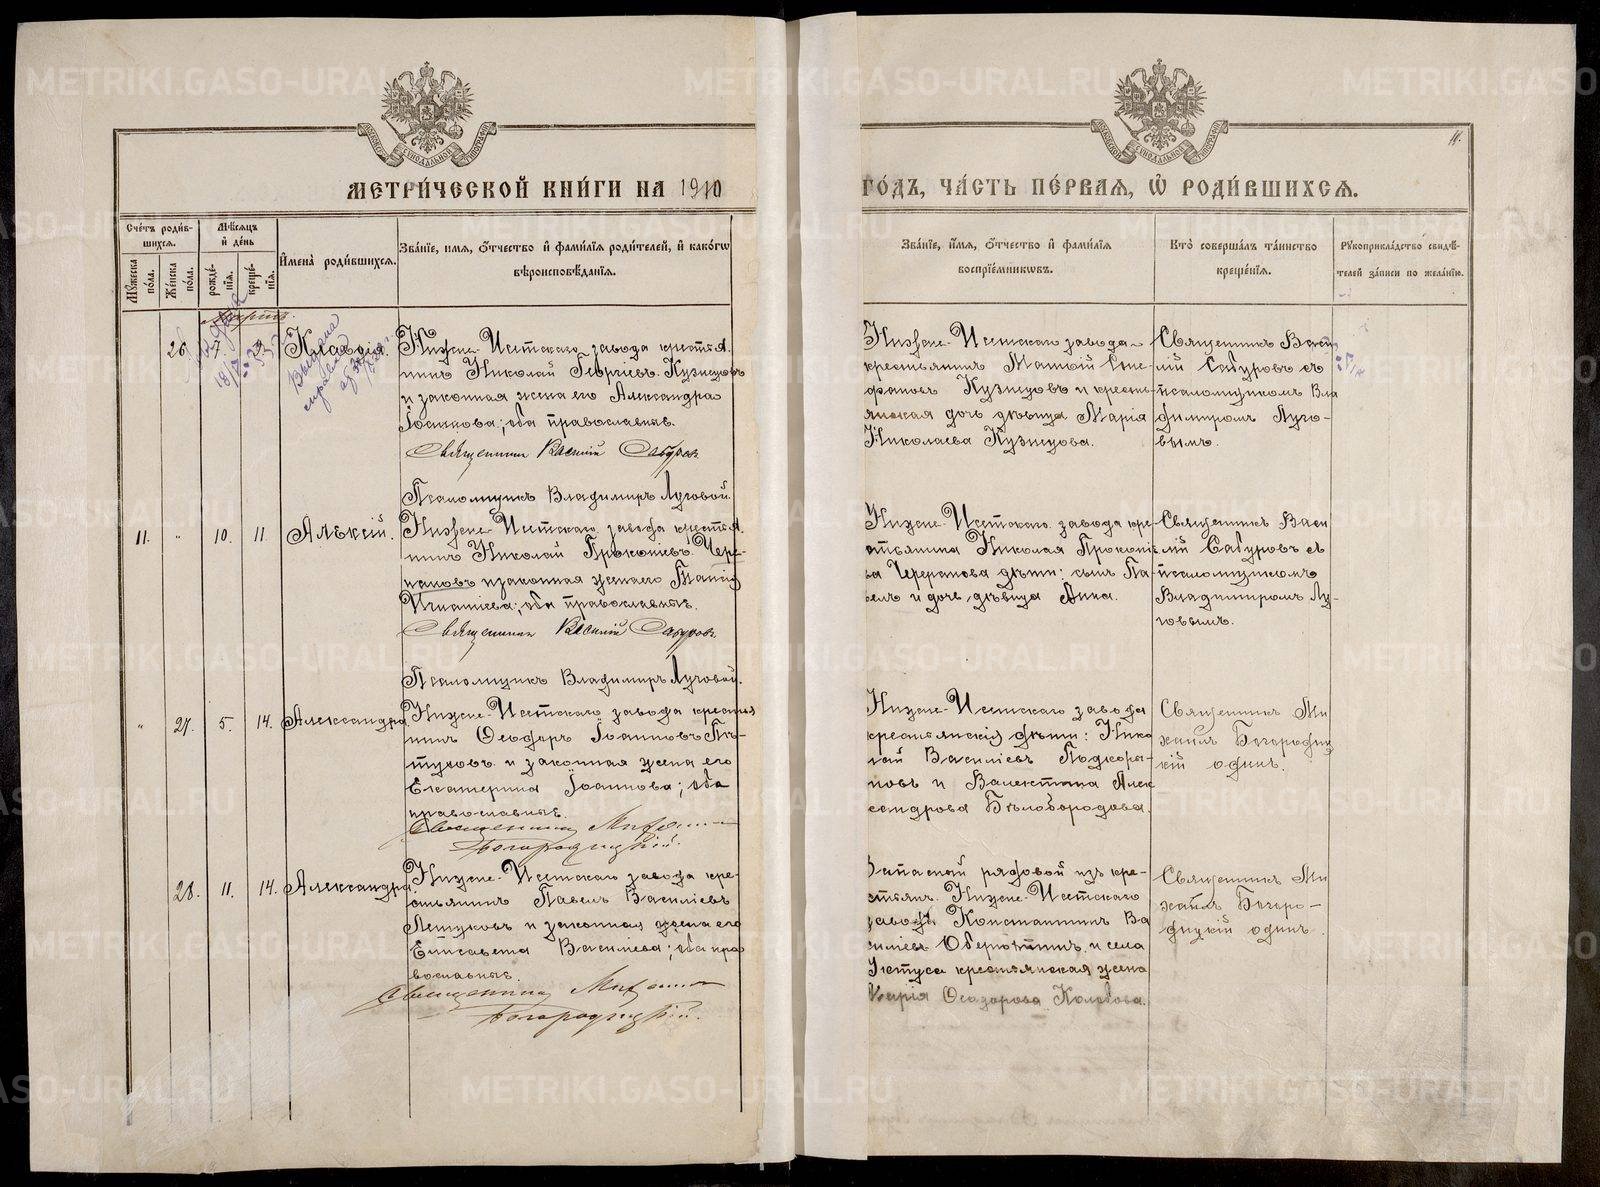 METRIKI.GASO-URAL.RU
МЕТРИ́ЧЕСКОЙ КНИ́ГИ НА 1910
ГО́ДЪ, ЧА́СТЬ ПЕ́РВАѦ, Ѡ РОДИ́ВШИХСѦ.
14.
Сче́тъ роди́в-
шихсѧ.
Мѣ́сѧцъ
и де́нь
Мꙋ́жеска
по́ла.
Же́нска
по́ла.
рожде́-
нїѧ.
креще́-
нїѧ.
Имена̀ роди́вшихсѧ.
Зва́нїе, имѧ, ѻ́тчество и фами́лїѧ роди́телей, и како́гѡ
вѣроисповѣ́данїѧ.
Зва́нїе, и́мѧ, ѻ́тчество и фами́лїѧ
воспрїе́мникѡвъ.
Кто̀ соверша́лъ та́инство
креще́нїѧ.
Рꙋкоприкла́дство свидѣ́-
телей за́писи по жела́нїю.
Мартъ.
26. 7.
Клавдія.
Выдана
справка
Нижне-Исетскаго завода крестья-
нинъ Николай Георгіевъ Кузнецовъ
и законная жена его Александра
Іосифова; оба православные.
Священникъ Василій Сабуровъ
Псаломщикъ Владимиръ Луговой.
Нижне-Исетскаго завода
крестьянинъ Матѳій Сте-
фановъ Кузнецовъ и кресть-
янская дочь дѣвица Марія
Николаева Кузнецова.
Священникъ Васи
лій Сабуровъ съ
псаломщикомъ Вла
димиромъ Луго-
вымъ.
11. " 10. 11.
Алексій.
Нижне-Исетскаго завода крестья-
нинъ Николай Прокопіевъ Чере-
пановъ и законная жена его
Игнатіева; оба православные.
Священникъ Василій Сабуровъ
Псаломщикъ Владимиръ Луговой.
Нижне-Исетскаго завода кре
стьянина Николая Прокопіе
ва Черепанова дѣти: сынъ Па
велъ и дочь дѣвица Анна.
Священникъ Васи
лій Сабуровъ съ
псаломщикомъ
Владимиромъ Лу-
говымъ.
" 27. 5. 14.
Александра.
Нижне-Исетскаго завода крестья
нинъ Ѳеодоръ Іоанновъ Пѣ-
туховъ и законная жена его
Екатерина Іоаннова; оба
православные.
Священникъ Михаилъ
Богородицкій.
Нижне-Исетскаго завода
крестьянскія дѣти: Нико
лай Василіевъ Подкоры-
товъ и Валентина Алек
сандрова Бѣлобородова.
Священникъ Ми
хаилъ Богородиц
кій одинъ.
28. 11. 14.
Александра.
Нижне-Исетскаго завода кре-
стьянинъ Павелъ Василіевъ
и законная жена его
Елисавета Василіева; оба пра
вославные.
Священникъ Михаилъ
Богородицкій.
Запасной рядовой изъ кре-
стьянъ Нижне-Исетскаго
завода Константинъ Ва
силіевъ и села
Уктуса крестьянская жена
Марія
Священникъ Ми
хаилъ Богоро-
дицкій одинъ.